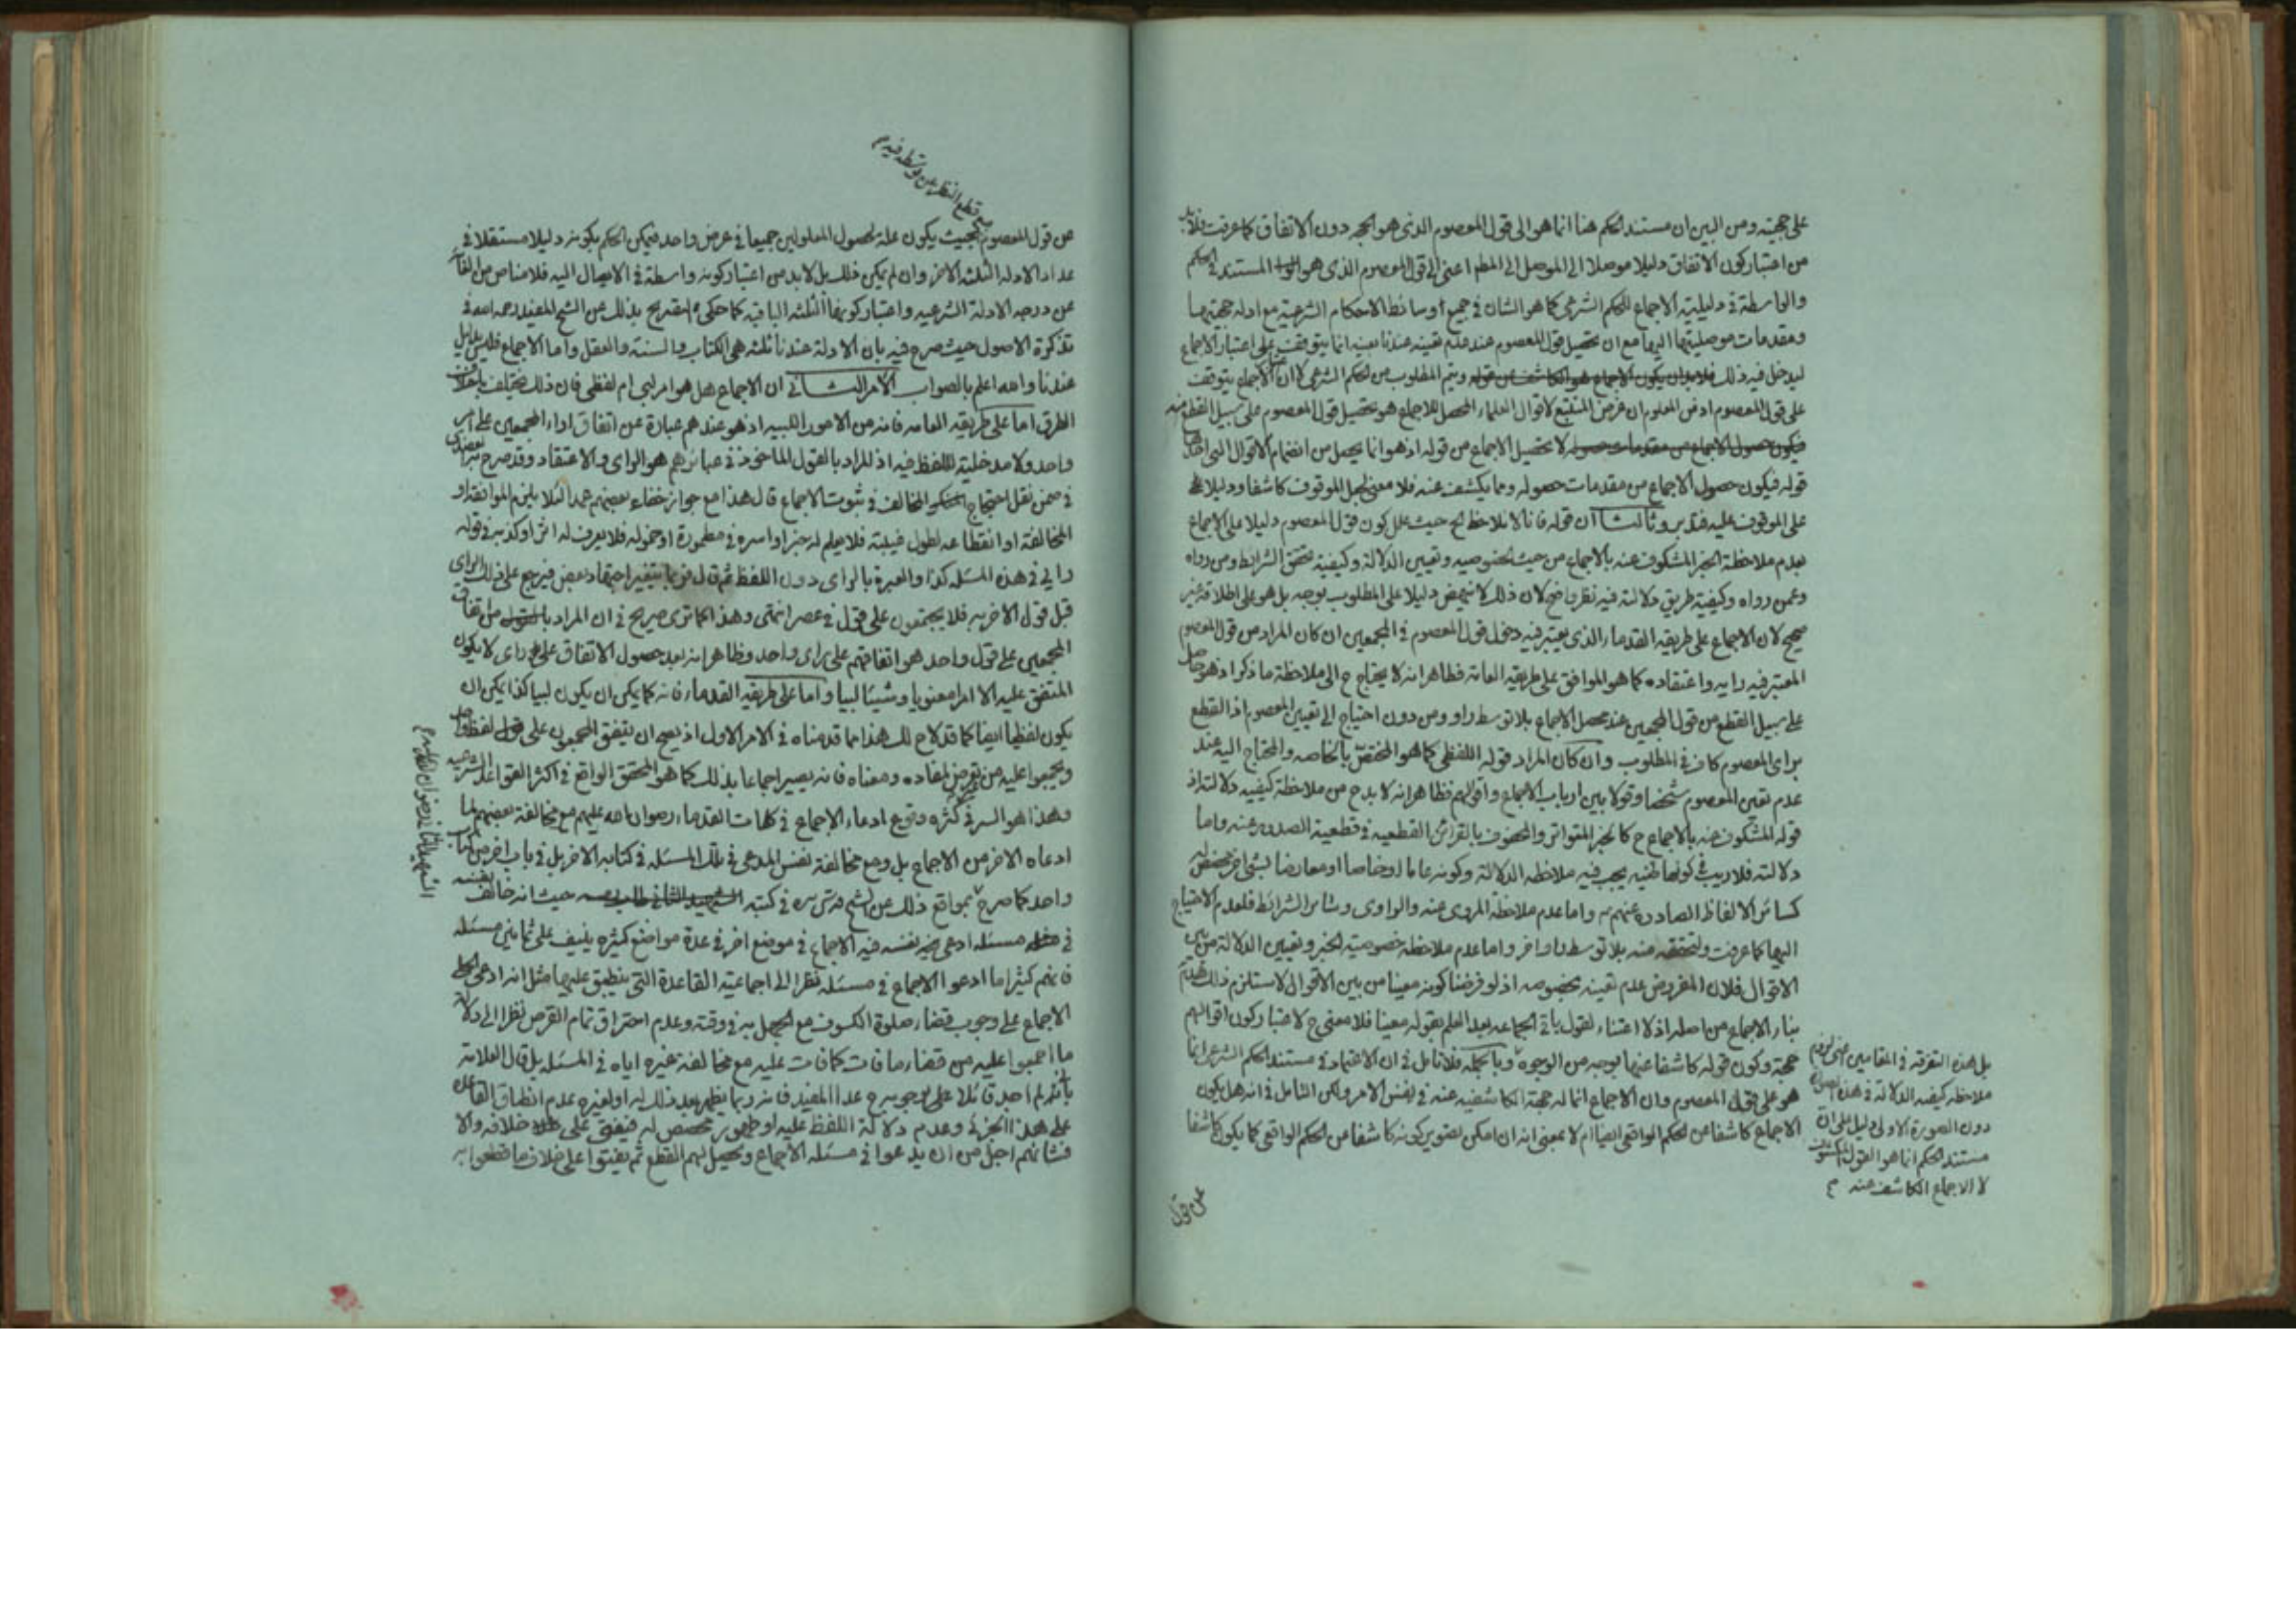 على حجيته ومن البين ان مستند الحكم هنا انما هو الى قول المعصوم الذى هو الحجه دون الاتفاق كما عرفت فلابد
من اعتبار كون الاتفاق دليلا موصلا الى الموصل الى المطم اعنى الى قول المعصوم الذى هو المستند فى الحكم
والواسطة فى دليلية الاجماع للحكم الشرعى كما هو الشان فى جميع اوسائط الاحكام الشرعية مع ادله حجيتها
ومقدمات موصليتها اليها مع ان تحصيل قول المعصوم عند عدم تعينه عندنا بعينه انما يتوقف على اعتبار الاجماع
ليدخل فيه ذلك فلابد ان يكون الاجماع هو الكاشف عن قوله ويتم المطلوب من الحكم الشرعى لا ان الاجماع يتوقف
على قول المعصوم اذ من المعلوم ان غرض المتتبع لاقوال العلماء المحصل للاجماع هو تحصيل قول المعصوم على سبيل القطع منه
فيكون حصول الاجماع من مقدمات حصوله لا تحصيل الاجماع من قوله اذ هو انما يحصل من انضمام الاقوال التى احدها
قوله فيكون حصول الاجماع من مقدمات حصوله ومما يكشف عنه فلا معنى لجعل الموقوف كاشفا ودليلا على
على الموقوف عليه فتدبر وثالثا ان قوله فانا لا نلاحظ الخ حيث علل كون قول المعصوم دليلا على الاجماع
بعدم ملاحظة الخبر المنكشف عنه بالاجماع من حيث خصوصيه وتعيين الدلالة وكيفية تحقق الشرائط ومن رواه
وعمن رواه وكيفية طريق دلالته فيه نظر واضح لان ذلك لا ينهض دليلا على المطلوب بوجه بل هو على اطلاقه غير
صحيح لان الاجماع على طريقه القدماء الذى يعتبر فيه دخول قول المعصوم فى المجمعين ان كان المراد من قول المعصوم
المعتبر فيه رايه واعتقاده كما هو الموافق على طريقه العامة فظاهر انه لا يحتاج ح الى ملاحظة ما ذكر اذ هو حاصل
على سبيل القطع من قول المجمعين عند محصل الاجماع بلا توسط راو ومن دون احتياج الى تعيين المعصوم اذ القطع
براى المعصوم كاف فى المطلوب وان كان المراد قوله اللفظى كما هو المختص بالخاصه والمحتاج اليه عند
عدم تعين المعصوم شخصا وقولا بين ارباب الاجماع واقوالهم فظاهر انه لا بد ح من ملاحظة كيفيه دلالته اذ
قوله المنكشف عنه بالاجماع ح كالخبر المتواتر والمحفوف بالقرائن القطعيه فى قطعية الصدور عنه واما
دلالته فلا ريب فى كونها ظنيه يجب فيه ملاحظه الدلالة وكونه عاما او خاصا او معارضا بشى اخر مخصص له
كسائر الالفاظ الصادره عنهم ع واما عدم ملاحظة المروى عنه والراوى وسائر الشرائط فلعدم الاحتياج
اليها كما عرفت ولتحققه منه بلا توسط راو اخر واما عدم ملاحظه خصوصيته الخبر وتعيين الدلالة من بين
الاقوال فلان المفروض عدم تعينه بخصوصه اذ لو فرضنا كونه معينا من بين الاقوال لاستلزم ذلك هدم
بناء الاجماع من اصله اذ لا اعتناء لقول باقى الجماعه بعد العلم بقوله معينا فلا معنى ح لاعتبار كون اقوالهم
حجة وكون قوله كاشفا عنها بوجه من الوجوه وبالجمله فلا تامل فى ان الاعتماد فى مستند الحكم الشرعى انما
هو على قول المعصوم وان الاجماع انما له حجة الكاشفيه عنه فى نفس الامر ولكن التامل فى انه هل يكون
الاجماع كاشفا عن الحكم الواقعى ايضا ام لا بمعنى انه ان امكن تصوير كونه كاشفا عن الحكم الواقعى كما يكون كاشفا
بل هذه التفرقه فى المقامين اعنى لزوم
ملاحظه كيفيه الدلالة فى هذه الصورة
دون الصورة الاولى دليل على ان
مستند الحكم انما هو القول المنكشف
لا الاجماع الكاشف عنه م
عن قول
مع قطع النظر عن توسطه فيه م
عن قول المعصوم بحيث يكون علة لحصول المعلولين جميعا فى عرض واحد فيمكن الحكم بكونه دليلا مستقلا فى
عداد الادله الثلثه الاخر وان لم يكن ذلك بل لا بد من اعتبار كونه واسطة فى الايصال اليه فلا مناص من القائه
عن درجه الادلة الشرعيه واعتبار كونها الثلثه الباقيه كما حكى التصريح بذلك عن الشيخ المفيد رحمه الله فى
تذكرة الاصول حيث صرح فيه بان الادلة عندنا ثلثه هى الكتاب والسنة والعقل واما الاجماع فليس بدليل
عندنا والله اعلم بالصواب الامر الثانى ان الاجماع هل هو امر لبى ام لفظى فان ذلك يختلف باختلاف
الطرق اما على طريقه العامه فانه من الامور اللبيه اذ هو عندهم عبارة عن اتفاق اراء المجمعين على امر
واحد ولا مدخلية للفظ فيه اذ المراد بالقول الماخوذ فى عبائرهم هو الراى والاعتقاد وقد صرح به العضدى
فى ضمن نقل احتجاج المخالف فى ثبوت الاجماع قال هذا مع جواز خفاء بعضهم عمدا لئلا يلزم الموافقه او
المخالفة او انقطاعه لطول غيبته فلا يعلم له خبر او اسره فى مطمورة او خموله فلا يعرف له اثر او كذبه فى قوله
رايى فى هذه المسئله كذا والعبرة بالراى دون اللفظ ثم قال فربما يتغير اجتهاد بعض فيرجع عن ذلك الراى
قبل قول الاخر به فلا يجتمعون على قول فى عصر انتهى وهذا كما ترى صريح فى ان المراد بالقول من اتفاق
المجمعين على قول واحد هو اتفاقهم على راى واحد وظاهر انه بعد حصول الاتفاق على راى لا يكون
المتفق عليه الا امرا معنويا وشيئا لبيا واما على طريقه القدماء فانه كما يمكن ان يكون لبيا كذا يمكن ان
يكون لفظيا ايضا كما قد لاح لك هذا مما قدمناه فى الامر الاول اذ يصح ان يتفق المجمعون على قول لفظ واحد
ويجمعوا عليه من تعرض لمفاده ومعناه فانه يصير اجماعا بذلك كما هو المحقق الواقع فى اكثر القواعد الشرعيه
وهذا هو السر فى كثره وقوع ادعاء الاجماع فى كلمات القدماء رضوان الله عليهم مع مخالفة بعضهم لما
ادعاه الاخر من الاجماع بل ومع مخالفة نفس المدعى فى تلك المسئله فى كتابه الاخر بل فى باب اخر من كتاب
واحد كما صرح بمواقع ذلك عن الشيخ قدس سره فى كتبه الشهيد الثانى حيث انه خالف نفسه
فى مسئله ادعى هو نفسه فيه الاجماع فى موضع اخر فى عدة مواضع كثيره ينيف على ثمانين مسئله
فانهم كثيرا ما ادعوا الاجماع فى مسئله نظرا الى اجماعية القاعدة التى ينطبق عليها مثل انه ادعى
الاجماع على وجوب قضاء صلوة الكسوف مع الجهل به فى وقته وعدم احتراق تمام القرص نظرا الى دلالة
ما اجمعوا عليه من قضاء ما فات كما فات عليه مع مخالفة غيره اياه فى المسئله بل قال العلامة
بانه لم اجد قائلا على وجوبه ح عدا المفيد فانه ربما يظهر بعد ذلك له او لغيره عدم انطباق القاعده
على هذا الجزئى وعدم دلالة اللفظ عليه او ظهور مخصص له فيفتى على خلافه والا
فشانهم اجل من ان يدعوا فى مسئله الاجماع ويحصل لهم القطع ثم يفتوا على خلاف ما قطعوا به
الشهيد الثانى رضوان الله عليه م